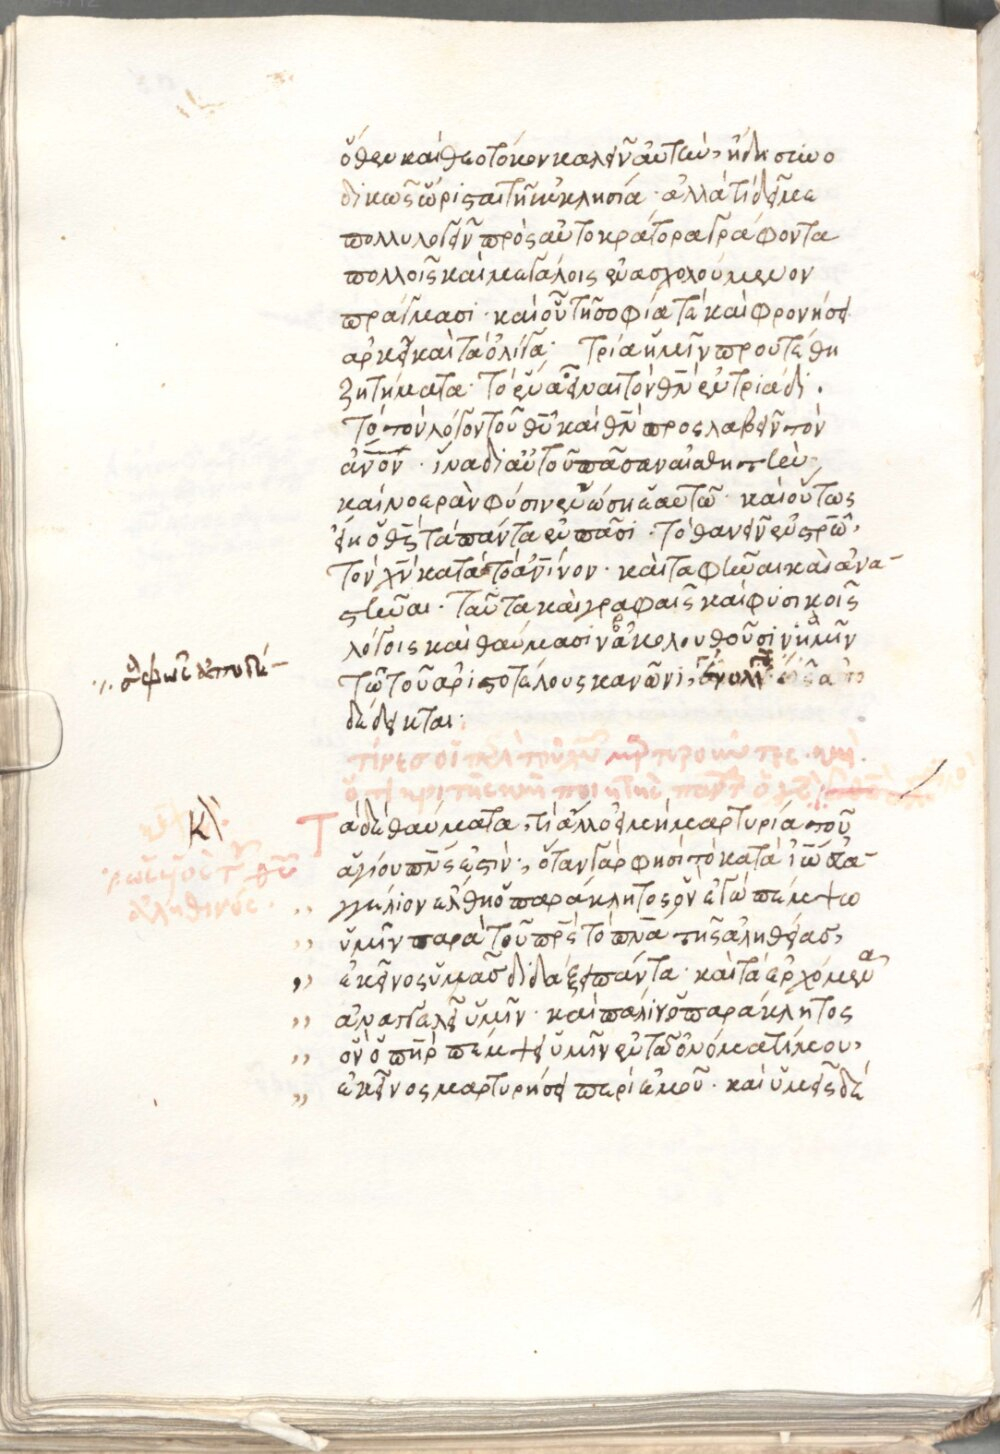 ὅθεν καὶ θεοτόκον καλεῖν αὐτὴν, ἤδη συνο
δικῶς ὥρισται τῇ ἐκκλησίᾳ· ἀλλὰ τί δεῖ με
πολυλογεῖν πρὸς αὐτοκράτορα γράφοντα
πολλοῖς καὶ μεγάλοις ἐνασχολούμενον
πράγμασι· καὶ οὗ τῇ σοφίᾳ τὲ καὶ φρονήσει
ἀρκεῖ καὶ τὰ ὀλίγα· Τρία ἡμῖν προυτέθη
ζητήματα· τὸ ἕνα εἶναι τὸν θν ἐν τριάδι·
Τὸ τὸν λόγον τοῦ θυ καὶ θν προσλαβεῖν τὸν
ανον· ἵνα δι αὐτοῦ πᾶσαν αἰσθητὴν,
καὶ νοερὰν φύσιν ἑνώσῃ ἑαυτῷ· καὶ οὕτως
εἴη ὁ θς τὰ πάντα ἐν πᾶσι· Τὸ θανεῖν ἐν σρω,
τὸν χν κατὰ τὸ ανινον· καὶ ταφῆναι καὶ ἀνα-
στῆναι· Ταῦτα καὶ γραφαῖς καὶ φυσικοῖς
λόγοις καὶ θαύμασιν ἀκολουθοῦσιν ἡμῖν
τῷ τοῦ ἀριστοτέλους κανόνι,
δέδεικται·
Τὰ δὲ θαύματα, τί ἄλλο εἰ μὴ μαρτυρία τοῦ
ἁγίου πνς ἐστίν· ὅταν γάρ φησὶ τὸ κατὰ ιω εὐα-
γγέλιον ἔλθῃ ὁ παράκλητος ὃν ἐγὼ πέμψω
ὑμῖν παρὰ τοῦ πρς τὸ πνα τῆς ἀληθείας,
ἐκεῖνος ὑμᾶς διδάξει πάντα· καὶ τὰ ἐρχόμενα
ἀναγγελεῖ ὑμῖν· καὶ πάλιν ὁ παράκλητος
ὃν ὁ πηρ πέμψει ὑμῖν ἐν τῷ ὀνόματί μου,
ἐκεῖνος μαρτυρήσει περὶ ἐμοῦ· καὶ ὑμεῖς δὲ